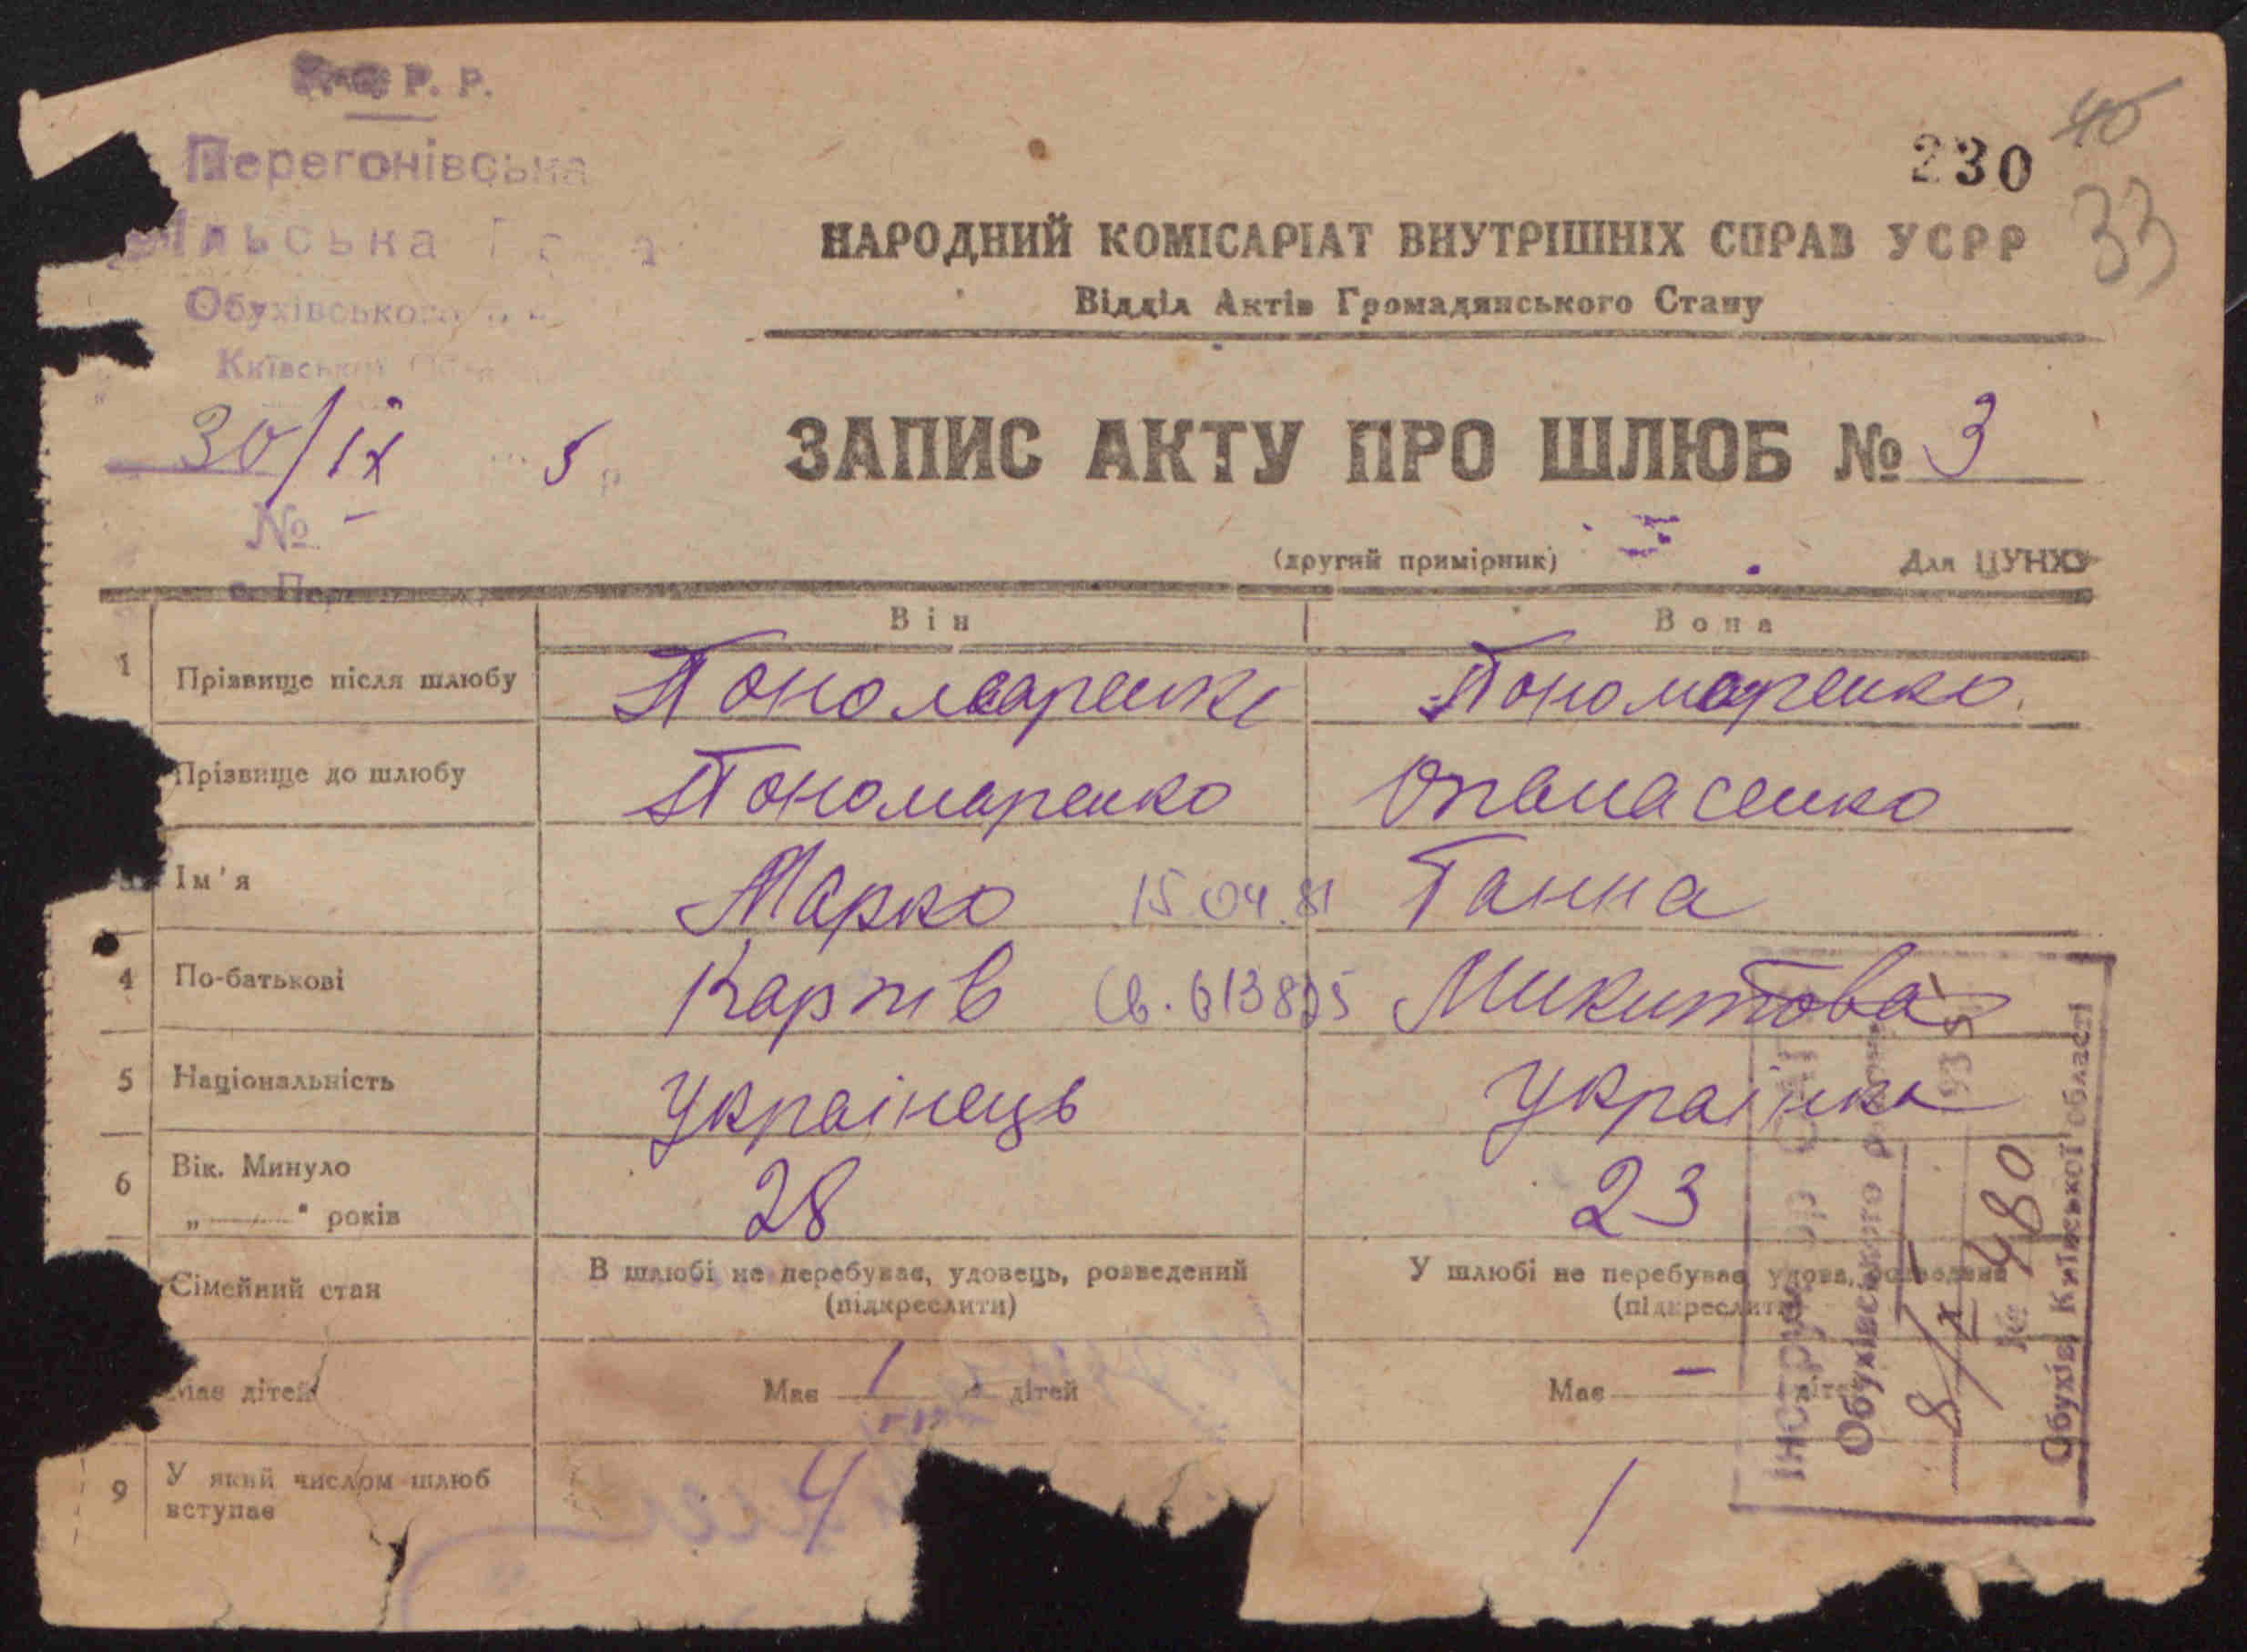 Р. Р.
Перегонівська
230 40
ільська
33
НАРОДНИЙ КОМІСАРІАТ ВНУТРІШНІХ СПРАВ УСРР
Обухівського
Відділ Актів Громадянського Стану
Київської
30/ІХ 5 р
ЗАПИС АКТУ ПРО ШЛЮБ № 3
№ –
(другий примірник) Для ЦУНХУ
Він Вона
1 Прізвище після шлюбу Пономаренко Пономаренко
Прізвище до шлюбу Пономаренко Опанасенко
Ім'я Марко 15.04.81 Ганна
4 По-батькові Карпів Св. 613875 Микитова
5 Національність Українець Українка
6 Вік. Минуло
„ — “ років 28 23
Сімейний стан В шлюбі не перебуває, удовець, розведений У шлюбі не перебуває, удова, розведена
(підкреслити) (підкреслити)
Має дітей Має 1 дітей Має –
9 У який числом шлюб
вступає 4 1
Інструктор
Обухівського
8/Х 935
№ 480
Обухів, Київської області